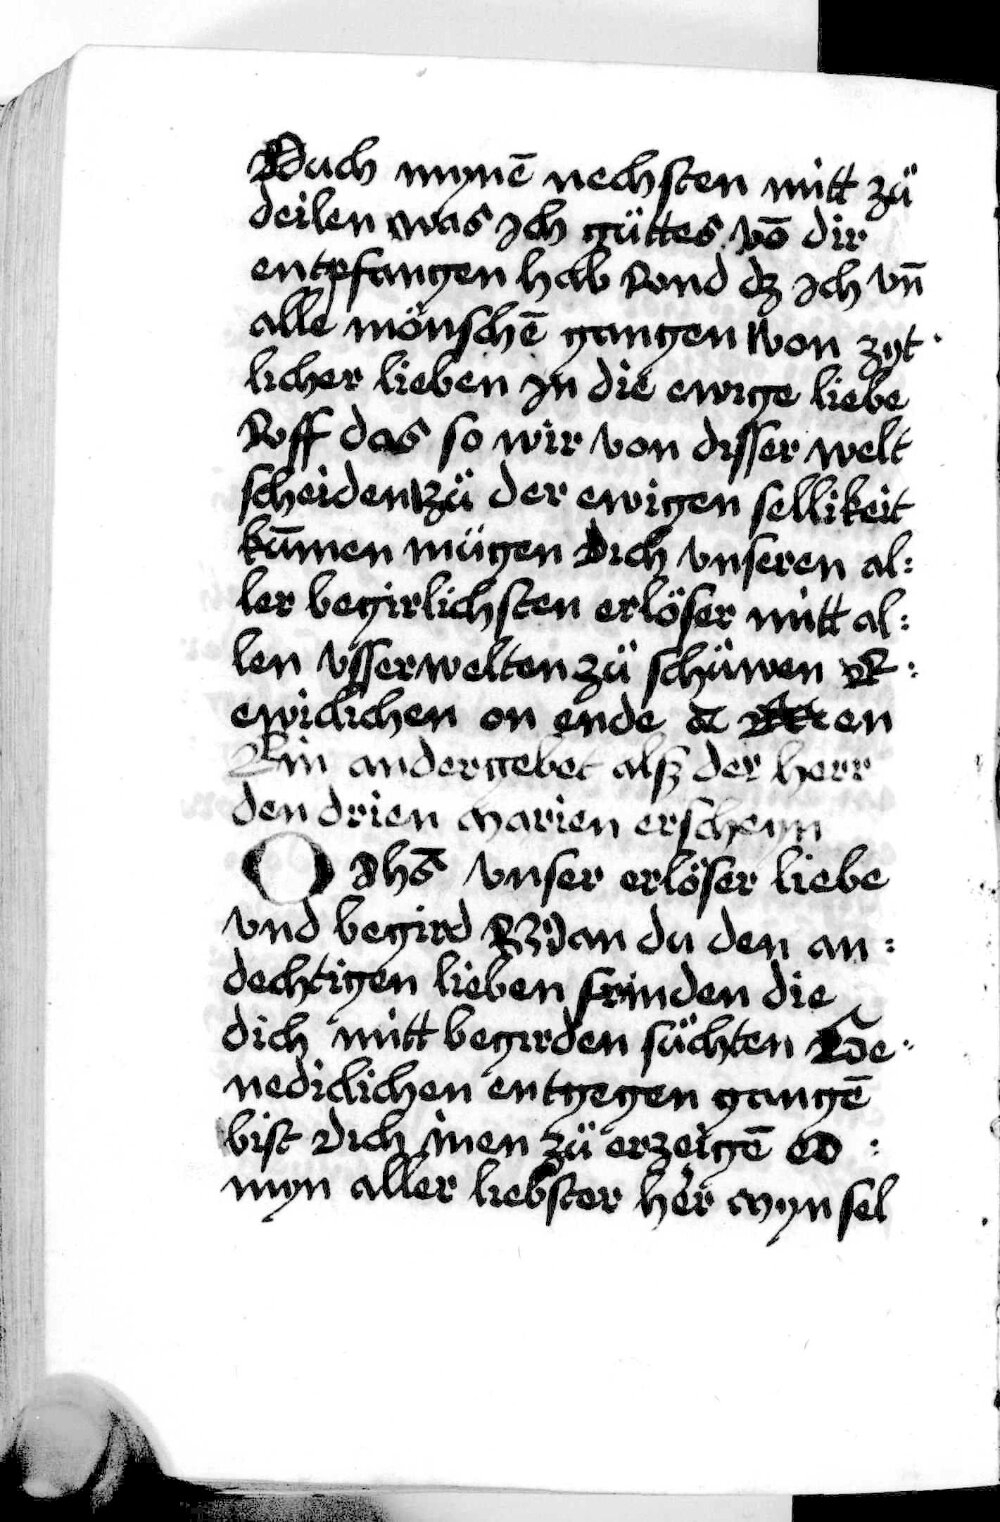 Ouch mynē nechsten mitt zü
deilen was ich güttes vō dir
entpfangen hab Vnd dz ich vn̄
alle mönschē gangen von zyt
licher lieben in die ewige liebe
Vff das so wir von disser welt
scheiden zü der ewigen sellikeit
kūmen mügen Dich vnseren al:
ler begirlichsten erlöser mitt al:
len vsserwelten zü schüwen
ewiclichen on ende
Ein ander gebet alß der herr
den drien marien erscheyn
O Jhs̄ vnser erlöser liebe
vnd begird Wan du den an:
dechtigen lieben frinden die
dich mitt begirden süchten Ge:
nediclichen entgegen gangē
bist Dich inen zü erzeigē O
myn aller liebster her myn sel